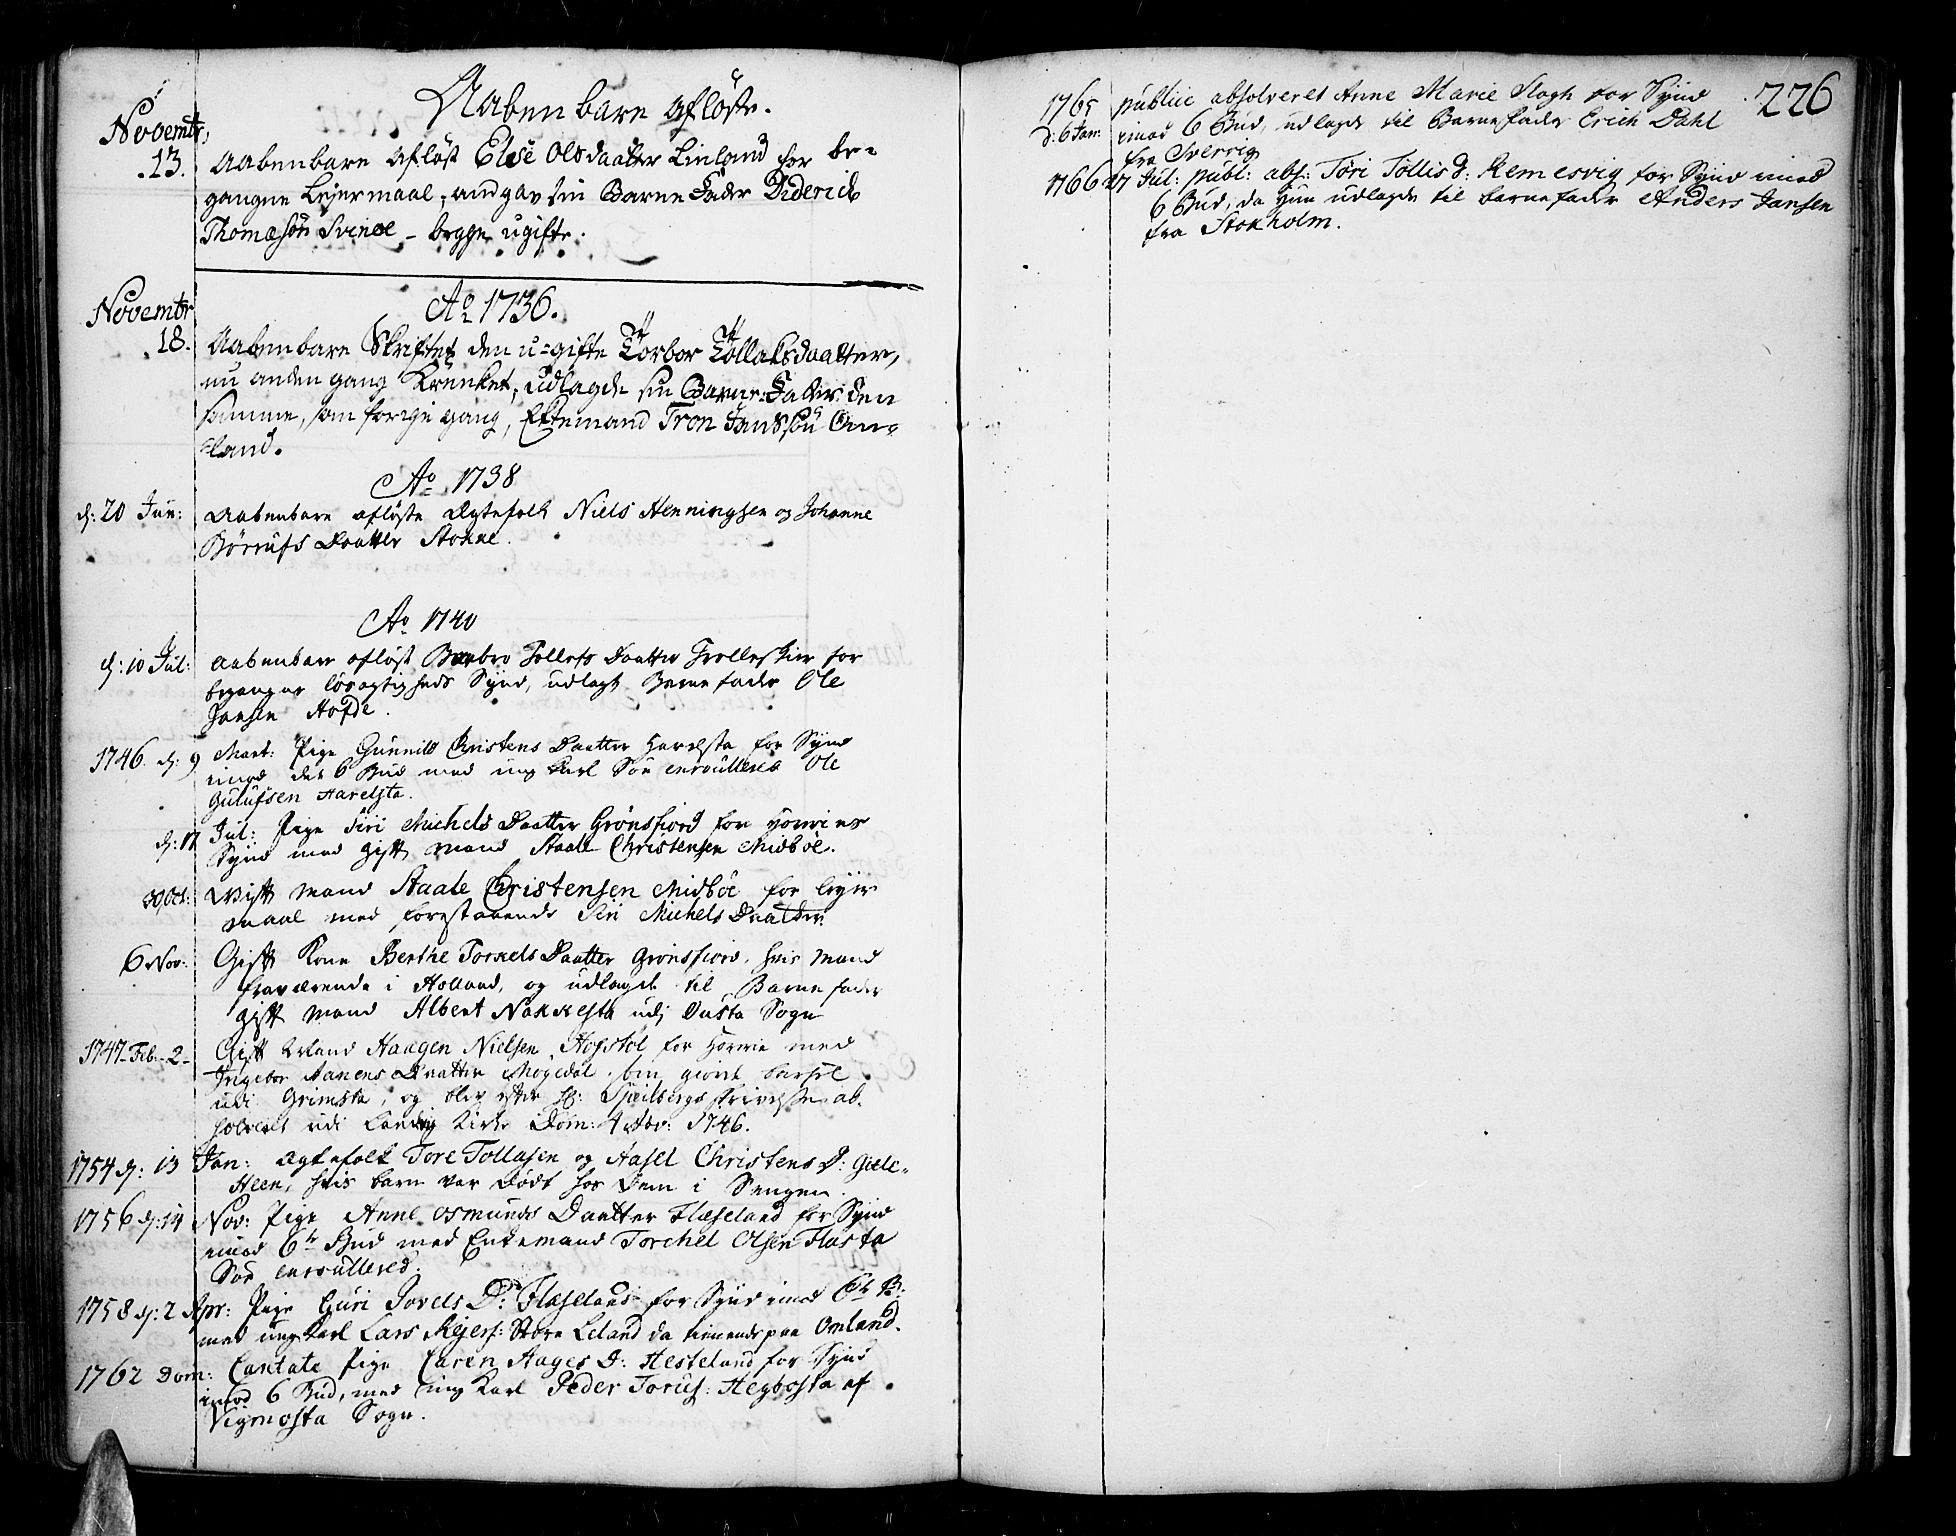 Aabenbare Afløste.
Novembr,
13. Aabenbare Afløst Else Olsdaatter Linland for be-
gangne Lejermaal, angav sin Barne Fader Diderich
Thomæsøn Svinøe - begge ugifte.
Ao 1736.
Novembr
18. Aabenbare Skriftet den u-gifte Torbor Tollaksdaatter,
nu anden gang Krenket, Udlagde sin Barne-Fader den
samme, som forige gang, Ektemand Tron Janssøn Om-
land.
Ao 1738
d: 20 Jun: Aabenbare afløste Ægtefolk Niels Henningsen og Johanne
Børrufs Daatter Stokke.
Ao 1740
d: 10 Jul: Aabenbare afløst Barbro Tollefs Daatter Trolleskier for
begangne løsagtigheds Synd, udlagt Barnefader Ole
Jansen Hofde.
1746. d: 9 Mart: Pige Gunnild Christens Daatter Harelsta for Synd
imod det 6 Bud med ung Karl Søe enroullered Ole
Gulufsen Harelsta.
d: 17 Jul: Pige Siri Michels Daatter Grønsfiord for horries
Synd med gift mand Staale Christensen Midbøe.
30 Oct: Gift mand Staale Christensen Midbøe for leyer
maal med forestaaende Siri Michels Daatter.
6 Nov: Gift Kone Berthe Torkels Daatter Grønsfiord, hvis mand
fraværende i Holland, og udlagde til Barne fader
gift mand Albert Nakkesta udj Sogn
1747 Feb: 2 Gift Mand Haagen Nielsen Hofstøl for Horrie med
Ingebor Aanens Daatter Mogedal, som giorde barsel
udi Grimsta, og blev efter Hr: Spielbergs skrivelse ab-
solveret udi Landvig Kirke Dom: 4 Adv: 1746.
1754 d: 13 Jan: Ægtefolk Tore Tollasen og Aasel Christens D: Giele-
steen, hvis barn var dødt hos dem i Sengen.
1756 d: 14 Nov: Pige Anne Osmunds Daatter Flaseland for Synd
imod 6te Bud med Enkemand Torchel Olsen Flasta
Søe enroullered.
1758 d: 2 Apr: Pige Guri Jovels D: Flaseland for Synd imod 6te B:
med ung Karl Lars Rejers: Store Leland da tienendes paa Omland.
1762 Dom: Cantate Pige Caren Aages D: Hesteland for Synd
imod 6 Bud, med ung Karl Peder Torus: Hegbosta af
Vigmosta Sogn.
226
1765 publice absolveret Anne Marie Slogh for Synd
d: 6 Jan: imod 6 Bud, udlagde til Barnefader Erich Dahl
fra Sverrig
1766 27 Jul: publ: abs: Tøri Tollis D: Remesvig for Synd imod
6 Bud, da hun udlagde til barnefader Anders Jansen
fra Stokholm.